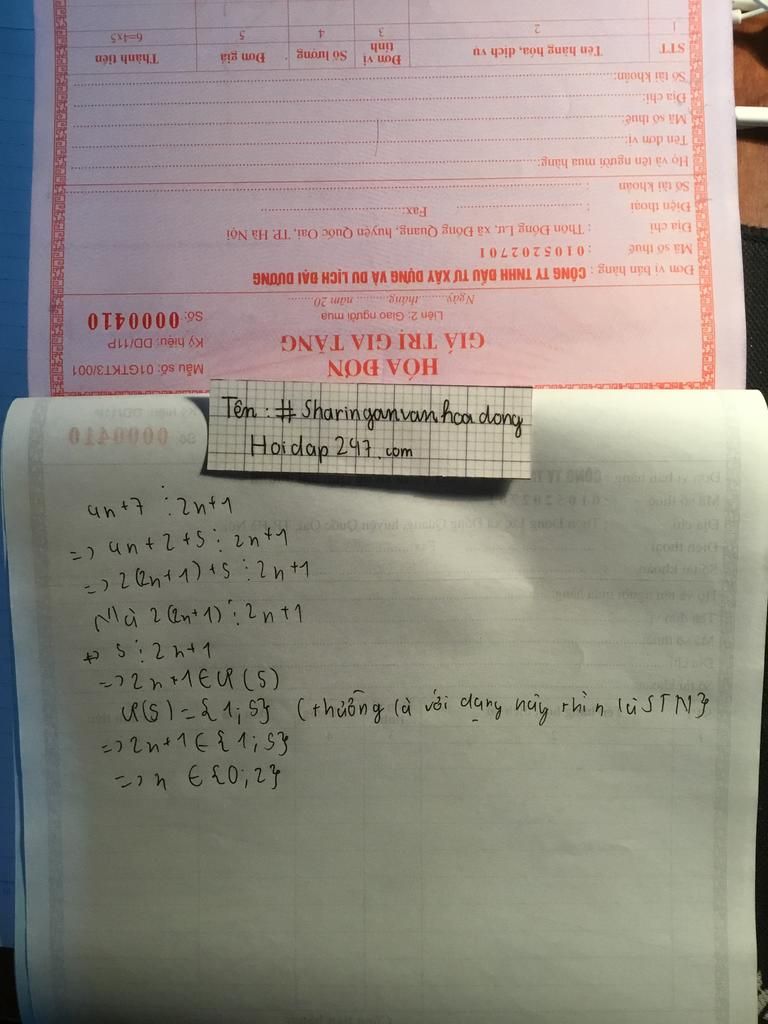 STT
Tên hàng hóa, dịch vụ
Đơn vị tính
Số lượng
Đơn giá
Thành tiền
1
2
3
4
5
6=4x5
Số tài khoản:
Địa chỉ:
Mã số thuế:
Tên đơn vị:
Họ và tên người mua hàng:
Số tài khoản
Điện thoại
Fax:
Địa chỉ : Thôn Đồng Lư, xã Đồng Quang, huyện Quốc Oai, TP. Hà Nội
Mã số thuế : 0105202701
Đơn vị bán hàng : CÔNG TY TNHH ĐẦU TƯ XÂY DỰNG VÀ DU LỊCH ĐẠI DƯƠNG
Ngày......tháng......năm 20
Liên 2: Giao người mua
Số: 0000410
GIÁ TRỊ GIA TĂNG
Ký hiệu: DD/11P
HÓA ĐƠN
Mẫu số: 01GTKT3/001
Tên : # Sharinganvanhoadong
Hoidap247.com
4n+7 ⋮ 2n+1
=> 4n+2+5 ⋮ 2n+1
=> 2(2n+1)+5 ⋮ 2n+1
Mà 2(2n+1) ⋮ 2n+1
=> 5 ⋮ 2n+1
=> 2n+1 ∈ Ư(5)
Ư(5) = {1;5} (thường là với dạng này thì n là STN}
=> 2n+1 ∈ {1;5}
=> n ∈ {0;2}